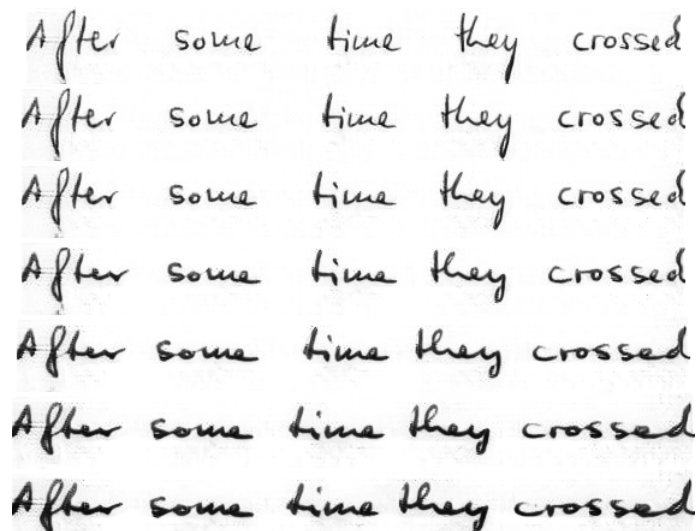 After some time they crossed
After some time they crossed
After some time they crossed
After some time they crossed
After some time they crossed
After some time they crossed
After some time they crossed